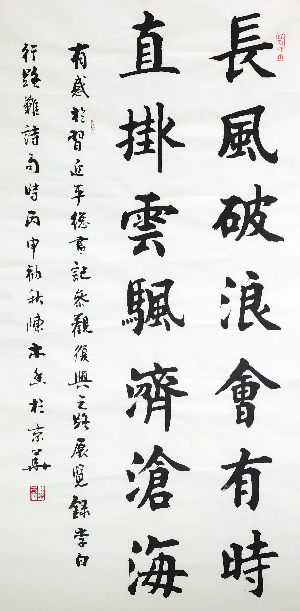 長風破浪會有時
直掛雲颿濟滄海
有感於習近平總書記參觀復興之路展覽錄李白
行路難詩句時丙申初秋陳木生於京華